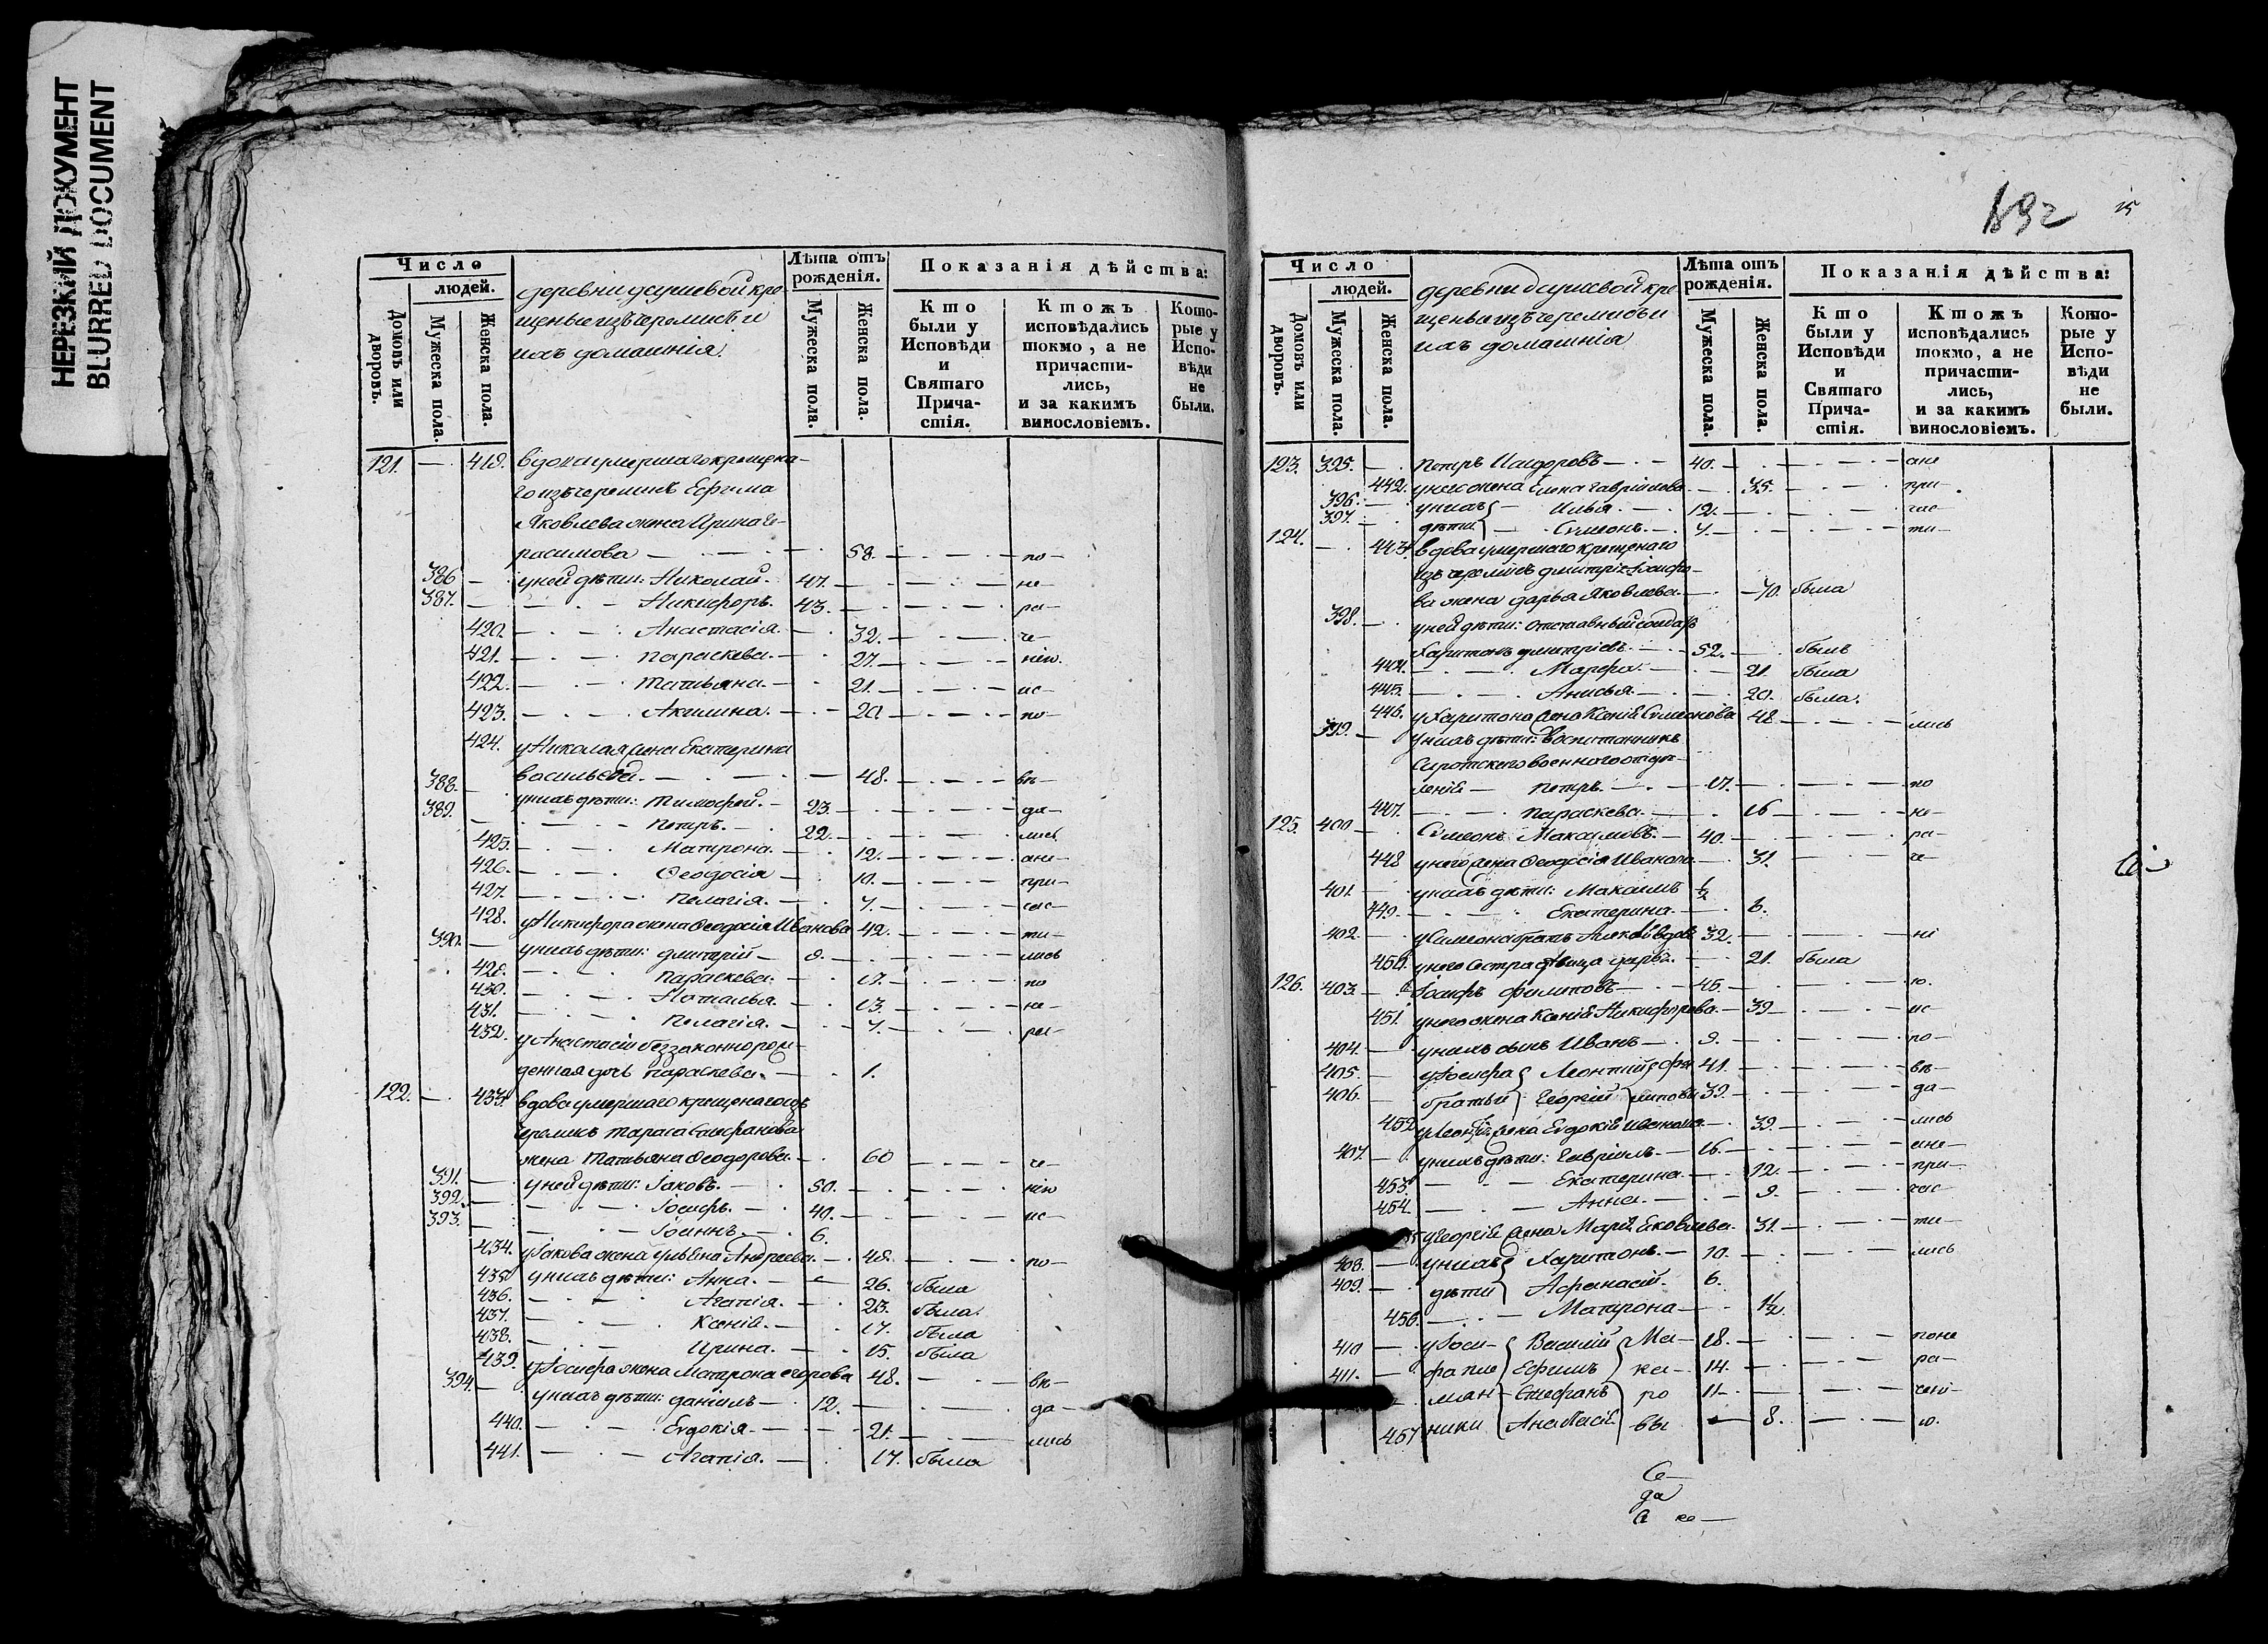 НЕРЕЗКИЙ ДОКУМЕНТ
BLURRED DOCUMENT
Число
людей.
Домовъ или дворовъ.
Мужеска пола.
Женска пола.
деревни душевой кре-
щеные изъ черемисъ и
ихъ домашнія.
Лѣта отъ рожденія.
Мужеска пола.
Женска пола.
Показанія дѣйства:
Кто были у Исповѣди и Святаго Причастія.
Ктожъ исповѣдались токмо, а не причастились, и за какимъ винословіемъ.
Которые у Исповѣди не были.
121. — 419. вдова умершаго крещена-
го изъ черемисъ Ефима
Яковлева жена Ирина Ге-
расимова — 58. — по-
386 — у ней дѣти: Николай. 47. — не-
387. — Никифоръ. 43. — ра-
420. — Анастасія. — 32. — че-
421. — Параскева. — 27. — нію.
422. — Татьяна. — 21. — ис-
423. — Акилина. — 20 — по-
424. у Николая жена Екатерина
васильева. — 48. — вѣ-
388. — у нихъ дѣти: Тимофей. — 23. — да-
389. — Петръ. — 22. — лись
425. — Матрона. — 12. — ане-
426. — Ѳеодосія — 10. — при-
427. — Пелагія. — 7. — час-
428. у Никифора жена Ѳеодосія Иванова 42. — ти-
390. — у нихъ дѣти: Дмитрій — 9. — лись
429. — Параскева. — 17. — по
430. — Наталья. — 13. — не-
431. — Пелагія. — 7. — ра-
432. у Анастасіи беззаконнорож-
денная дочь Параскева. — 1.
122. — 433. вдова умершаго крещенаго изъ
черемисъ Тараса Стефанова
жена Татьяна Ѳеодорова. — 60 — че-
391. — у ней дѣти: Іаковъ. — 50. — нію
392. — Іосифъ. — 40. — ис-
393. — Іоаннъ. — 6.
434. у Іакова жена Ульяна Андреева. — 48. — по-
435 у нихъ дѣти: Анна. — 26. была
436. — Агапія. — 23. была.
437. — Ксенія. — 17. была
438. — Ирина. — 15. была
439. у Іосифа жена Матрона егорова 48. — вѣ-
394. — у нихъ дѣти: даніилъ — 12. — да-
440. — Евдокія. — 21. — лись
441. — Агапія. — 17. была
15
Число
людей.
Домовъ или дворовъ.
Мужеска пола.
Женска пола.
деревни душевой кре
щеные изъ черемисъ и
ихъ домашнія
Лѣта отъ рожденія.
Мужеска пола.
Женска пола.
Показанія дѣйства:
Кто были у Исповѣди и Святаго Причастія.
Ктожъ исповѣдались токмо, а не причастились, и за какимъ винословіемъ.
Которые у Исповѣди не были.
123. 395. — Петръ Исидоровъ — 40. — ане
442. у него жена Елена Гавріилова — 35. — при-
396. — у нихъ Илья. — 12. — час-
397. — дѣти Симеонъ. — 7. — ти-
124. — 443. вдова умершаго крещенаго
изъ черемисъ дмитрія Іосифо-
ва жена дарья Яковлева. — 70. была
398. — у ней дѣти: отставный солдатъ
Харитонъ дмитріевъ. — 52. — былъ
444. — Марфа. — 21. была
445. — Анисья. — 20. была.
446. у Харитона жена Ксенія Симеонова 48. — лись
399. — у нихъ дѣти: воспитанникъ
Сиротскаго военнаго отдѣ-
леній — Петръ. — 17. — по
447. — Параскева. — 16 — не-
125. 400 — Симеонъ Максимовъ. — 40. — ра-
448 у него жена Ѳеодосія Иванова — 31. — че-
401. — у нихъ дѣти: Максимъ ½
449. — Екатерина. — 6.
402. — у Симеона братъ вдовъ 32. — ні
450. у него Сестра дѣвица дарья. — 21. была
126. 403. — Іосифъ Филиповъ — 45. — ю.
451. у него жена Ксенія Никифорова. — 39 — ис-
404. — у нихъ сынъ Иванъ — 9. — по-
405. — у Іосифа Леонтій фи 41. — вѣ-
406. — братья Георгій липовы 39. — да-
452 у Леонтія жена Евдокія Иванова. — 39. — лись
407. — у нихъ дѣти: Гавріилъ. — 16. — ане-
453. — Екатерина. — 12. — при-
454. — Анна. — 9. — час-
у Георгія жена Марія Яковлева. 31. — ти-
408. — у нихъ Харитонъ. — 10. — лись
409. — дѣти Афанасій. 6.
456. — Матрона — 1½
410 — у Іоси- Василій Ма- 18. — поне
411. — фа пле Ефимъ ка- 14. — ра-
мян- Стефанъ ро 11. — чені-
457 ники Анастасія вы — 8. — ю.
Се-
да